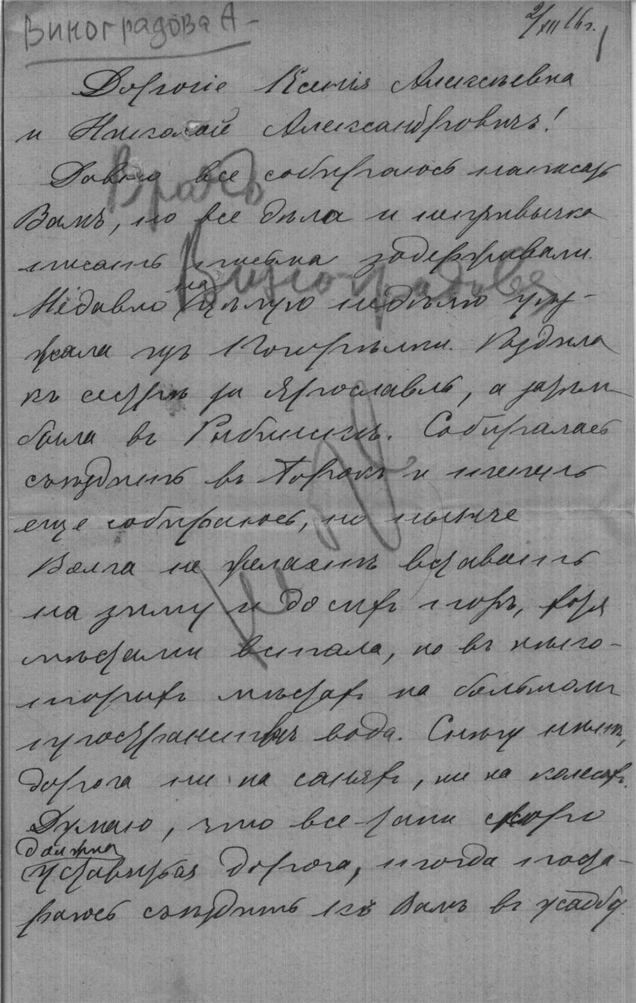 Виноградова А –
2/XII 16 г.
Дорогіе Ксенія Алексѣевна
и Николай Александровичъ!
Давно все собираюсь написать
Врачъ
Вамъ, но все дѣла и непривычка
писать письма задерживали.
Виноградова
Недавно на цѣлую недѣлю уѣз-
жала изъ Погорѣлки. Ѣздила
къ сестрѣ за Ярославль, а затѣмъ
была въ Рыбинскѣ. Собиралась
съѣздить въ и теперь
еще собираюсь, но нынче
Волга не желаетъ вставать
на зиму и до сихъ поръ, хотя
мѣстами встала, но въ нѣко-
торыхъ мѣстахъ на большомъ
пространствѣ вода. Снѣгу нѣтъ,
дорога ни на саняхъ, ни на колесахъ.
Думаю, что все-таки скоро
должна
уставиться дорога, и тогда поста-
раюсь съѣздить къ Вамъ въ усадьбу.